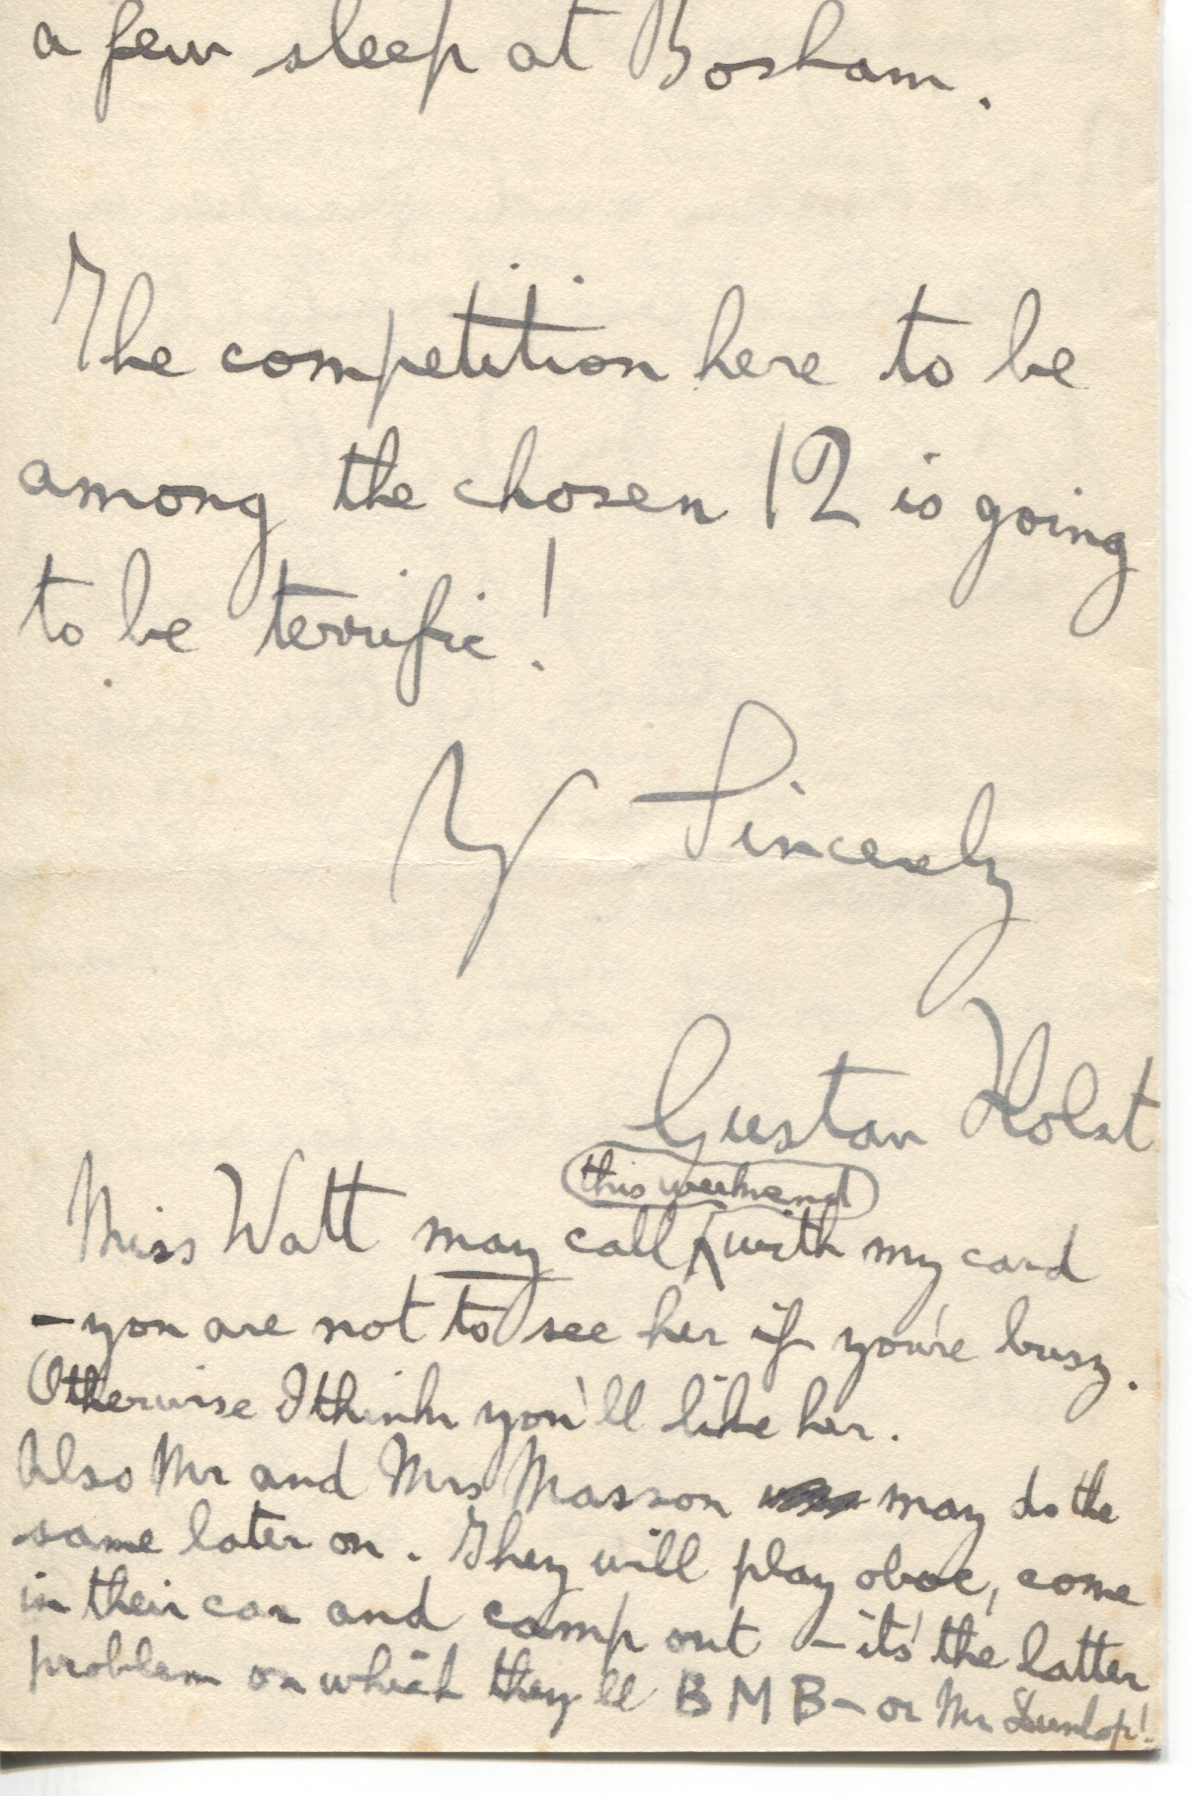 a few sleep at Bosham.
The competition here to be
among the chosen 12 is going
to be terrific!
Yrs Sincerely
Gustav Holst
this weekend
Miss Watt may call with my card
- you are not to see her if you're busy.
Otherwise I think you'll like her.
Also Mr and Mrs Masson may do the
same later on. They will play oboe, come
in their car and camp out - its' the latter
problem on which they'll BMB - or Mr Dunlop!